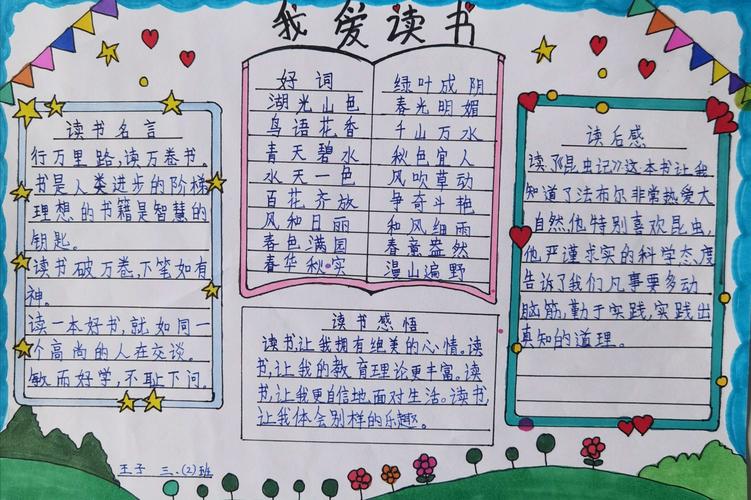 我爱读书
读书名言
行万里路,读万卷书。
书是人类进步的阶梯
理想的书籍是智慧的
钥匙。
读书破万卷,下笔如有
神。
读一本好书,就如同一
个高尚的人在交谈。
敏而好学,不耻下问。
好词
湖光山色
鸟语花香
青天碧水
水天一色
百花齐放
风和日丽
春色满园
春华秋实
绿叶成阴
春光明媚
千山万水
秋色宜人
风吹草动
争奇斗艳
和风细雨
春意盎然
漫山遍野
读书感悟
读书,让我拥有绝美的心情。读
书,让我的教育理论更丰富。读
书,让我更自信地面对生活。读书,
让我体会别样的乐趣。
读后感
读《昆虫记》这本书让我
知道了法布尔非常热爱大
自然,他特别喜欢昆虫,
他严谨求实的科学态度
告诉了我们凡事要多动
脑筋,勤于实践,实践出
真知的道理。
王子 三、(2)班